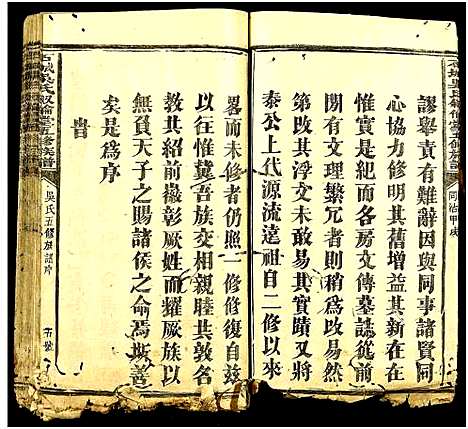 石城吳氏敘倫堂五修族譜
同治甲戌
謬舉責有難辭因與同事諸賢同
心協力修明其舊增益其新在在
慎重而無異至各房文傳墓誌從前
間有文理繁冗者則稍為改易然
第改其浮文未敢易其實蹟又以
泰公上代源流遠祖自二修以來
畧而未修者仍照一修修復自茲
以往惟冀吾族交相親睦共敦名
教其紹前徽彰厥姓而耀厥族以
無負天子之賜諸侯之命焉斯善
矣是為序
旹
吳氏五修族譜序
石城吳氏敘倫堂五修族譜